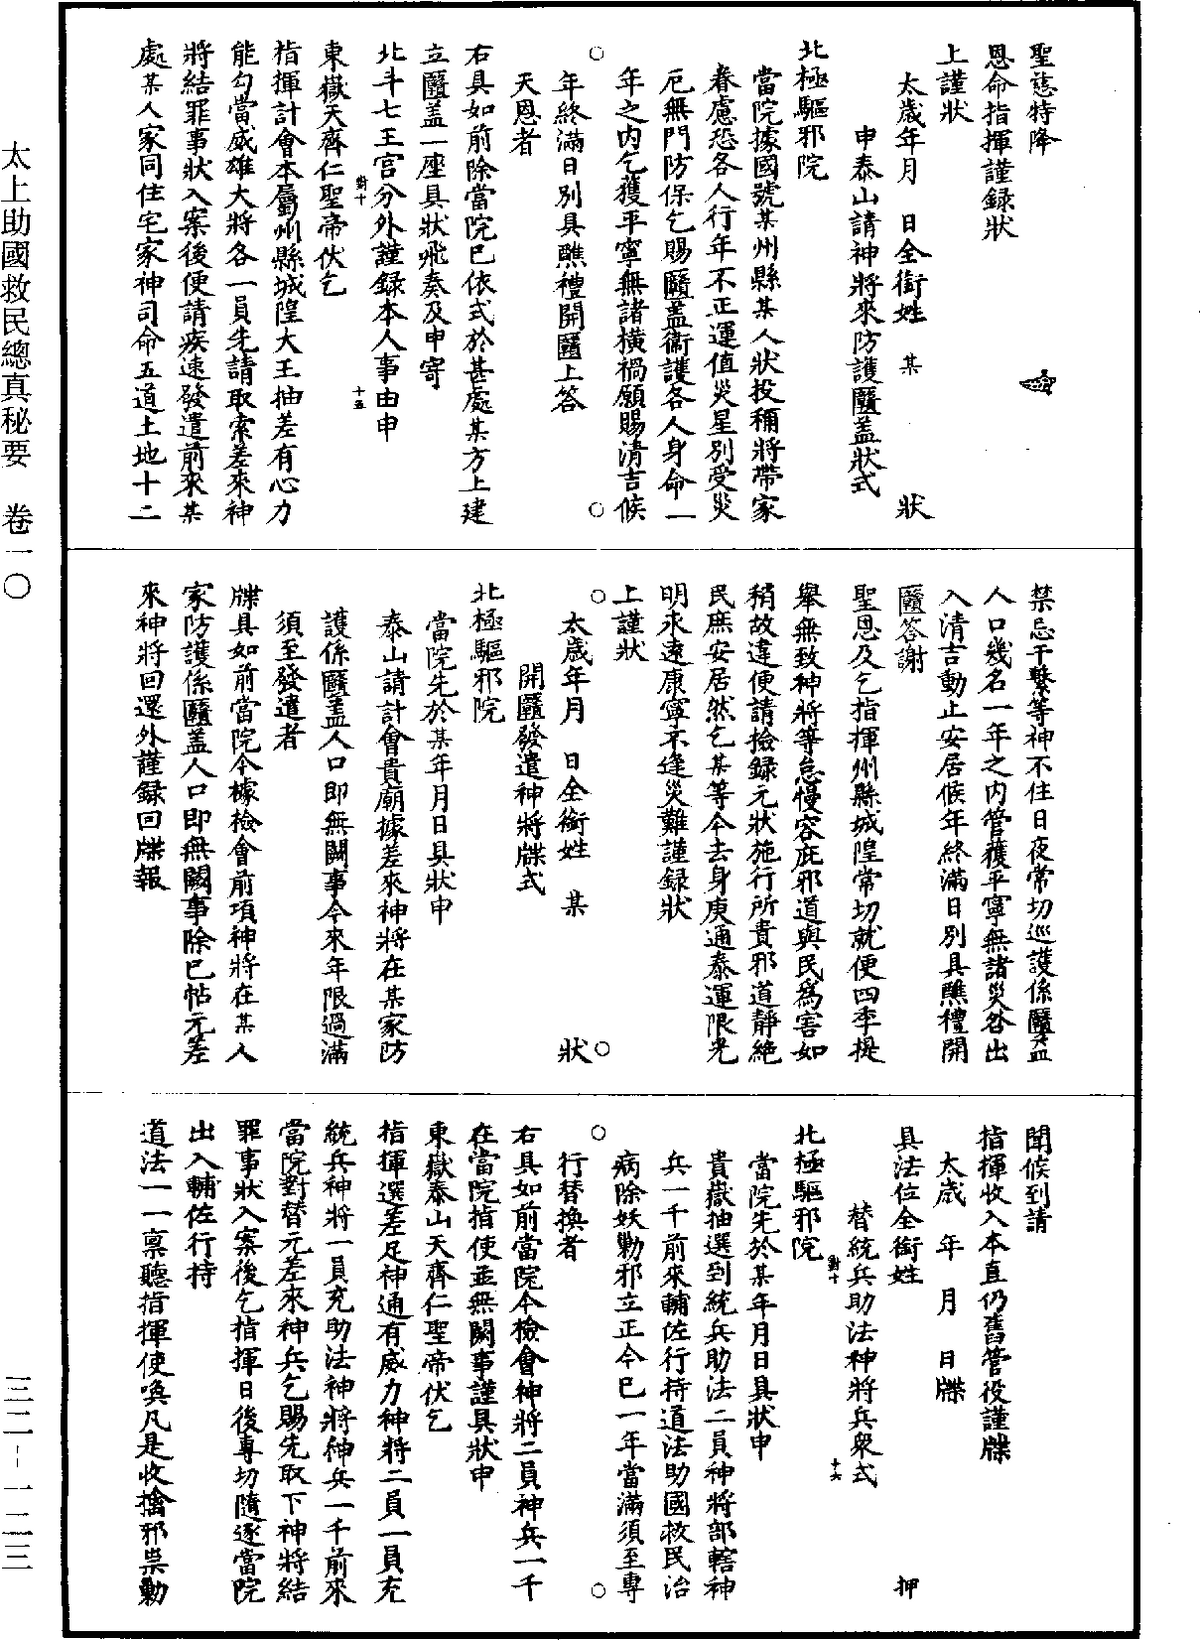 聖慈特降
恩命指揮謹録狀
上謹狀
太歲年月　日全銜姓　某　狀
申泰山請神將來防護醫盖狀式
北極驅邪院
當院據國號某州縣某人狀投稱將帶家
眷慮恐各人行年不正運值災星別受災
厄無門防保乞賜醫盖衞護各人身命一
年之内乞獲平寧無諸橫禍願賜清吉候
年終滿日別具醮禮開醫上答
天恩者
右具如前除當院已依式於甚處某方上建
立醫盖一座具狀飛奏及申寄
北斗七王宫分外謹録本人事由申
東嶽天齊仁聖帝伏乞
指揮計會本屬州縣城隍大王抽差有心力
能勾當威雄大將各一員先請取索差來神
將結罪事狀入案後便請疾速發遣前來某
處某人家同住宅家神司命五道土地十二
禁忌干繫等神不住日夜常切巡護係醫盖
人口幾名一年之内管獲平寧無諸災咎出
入清吉動止安居候年終滿日別具醮禮開
醫答謝
聖恩及乞指揮州縣城隍常切就便四季提
舉無致神將等怠慢容庇邪道與民爲害如
稍故違便請撿録元狀施行所貴邪道靜絶
民庶安居然乞某等今去身庚通泰運限光
明永遠康寧不逢災難謹録狀
上謹狀
太歲年月　日全銜姓　某　狀
開醫發遣神將牒式
北極驅邪院
當院先於某年月日具狀申
泰山請計會貴廟據差來神將在某家防
護係醫盖人口即無闕事今來年限過滿
須至發遣者
牒具如前當院今據檢會前項神將在某人
家防護係醫盖人口即無闕事除已帖元差
來神將回還外謹録回牒報
聞候到請
指揮收入本直仍舊管役謹牒
太歲　年　月　日牒
具法位全銜姓　押
替統兵助法神將兵衆式
北極驅邪院
當院先於某年月日具狀申
貴嶽抽選到統兵助法二員神將部轄神
兵一千前來輔佐行持道法助國救民治
病除妖勦邪立正今已一年當滿須至專
行替換者
右具如前當院今檢會神將二員神兵一千
在當院指使並無闕事謹具狀申
東嶽泰山天齊仁聖帝伏乞
指揮選差足神通有威力神將二員一員充
統兵神將一員充助法神將神兵一千前來
當院對替元差來神兵乞賜先取下神將結
罪事狀入案後乞指揮日後專切隨逐當院
出入輔佐行持
道法一一禀聽指揮使喚凡是收擒邪祟勦
太上助國救民總真秘要　卷一〇　三二－一二三